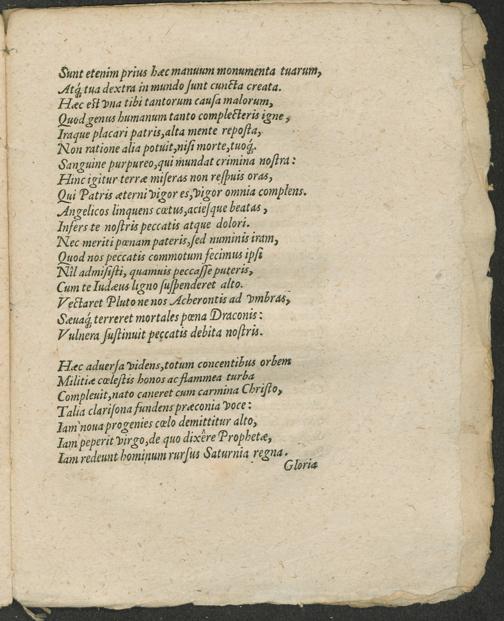 Sunt etenim prius hæc manuum monumenta tuarum,
Atq́; tua dextra in mundo sunt cuncta creata.
Hæc est vna tibi tantorum causa malorum,
Quod genus humanum tanto complecteris igne,
Iraque placari patris, alta mente reposta,
Non ratione alia potuit, nisi morte, tuoq́;
Sanguine purpureo, qui mundat crimina nostra:
Hinc igitur terræ miseras non respuis oras,
Qui Patris æterni vigor es, vigor omnia complens.
Angelicos linquens cœtus, aciesque beatas,
Infers te nostris peccatis atque dolori.
Nec meriti pœnam pateris, sed numinis iram,
Quod nos peccatis commotum fecimus ipsi
Nil admisisti, quamuis peccasse puteris,
Cum te Iudæus ligno suspenderet alto.
Vectaret Pluto ne nos Acherontis ad vmbras,
Sæuaq́; terreret mortales pœna Draconis:
Vulnera sustinuit peccatis debita nostris.
Hæc aduersa videns, totum concentibus orbem
Militiæ cœlestis honos ac flammea turba
Compleuit, nato caneret cum carmina Christo,
Talia clarisona fundens præconia voce:
Iam noua progenies cœlo demittitur alto,
Iam peperit virgo, de quo dixêre Prophetæ,
Iam redeunt hominum rursus Saturnia regna.
Gloria